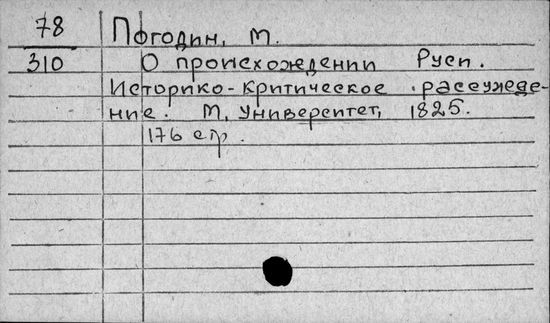 78 Погодин, М.
310 О происхождении Руси.
Историко-критическое рассужде-
ние. М, Университет, 1825.
176 стр.